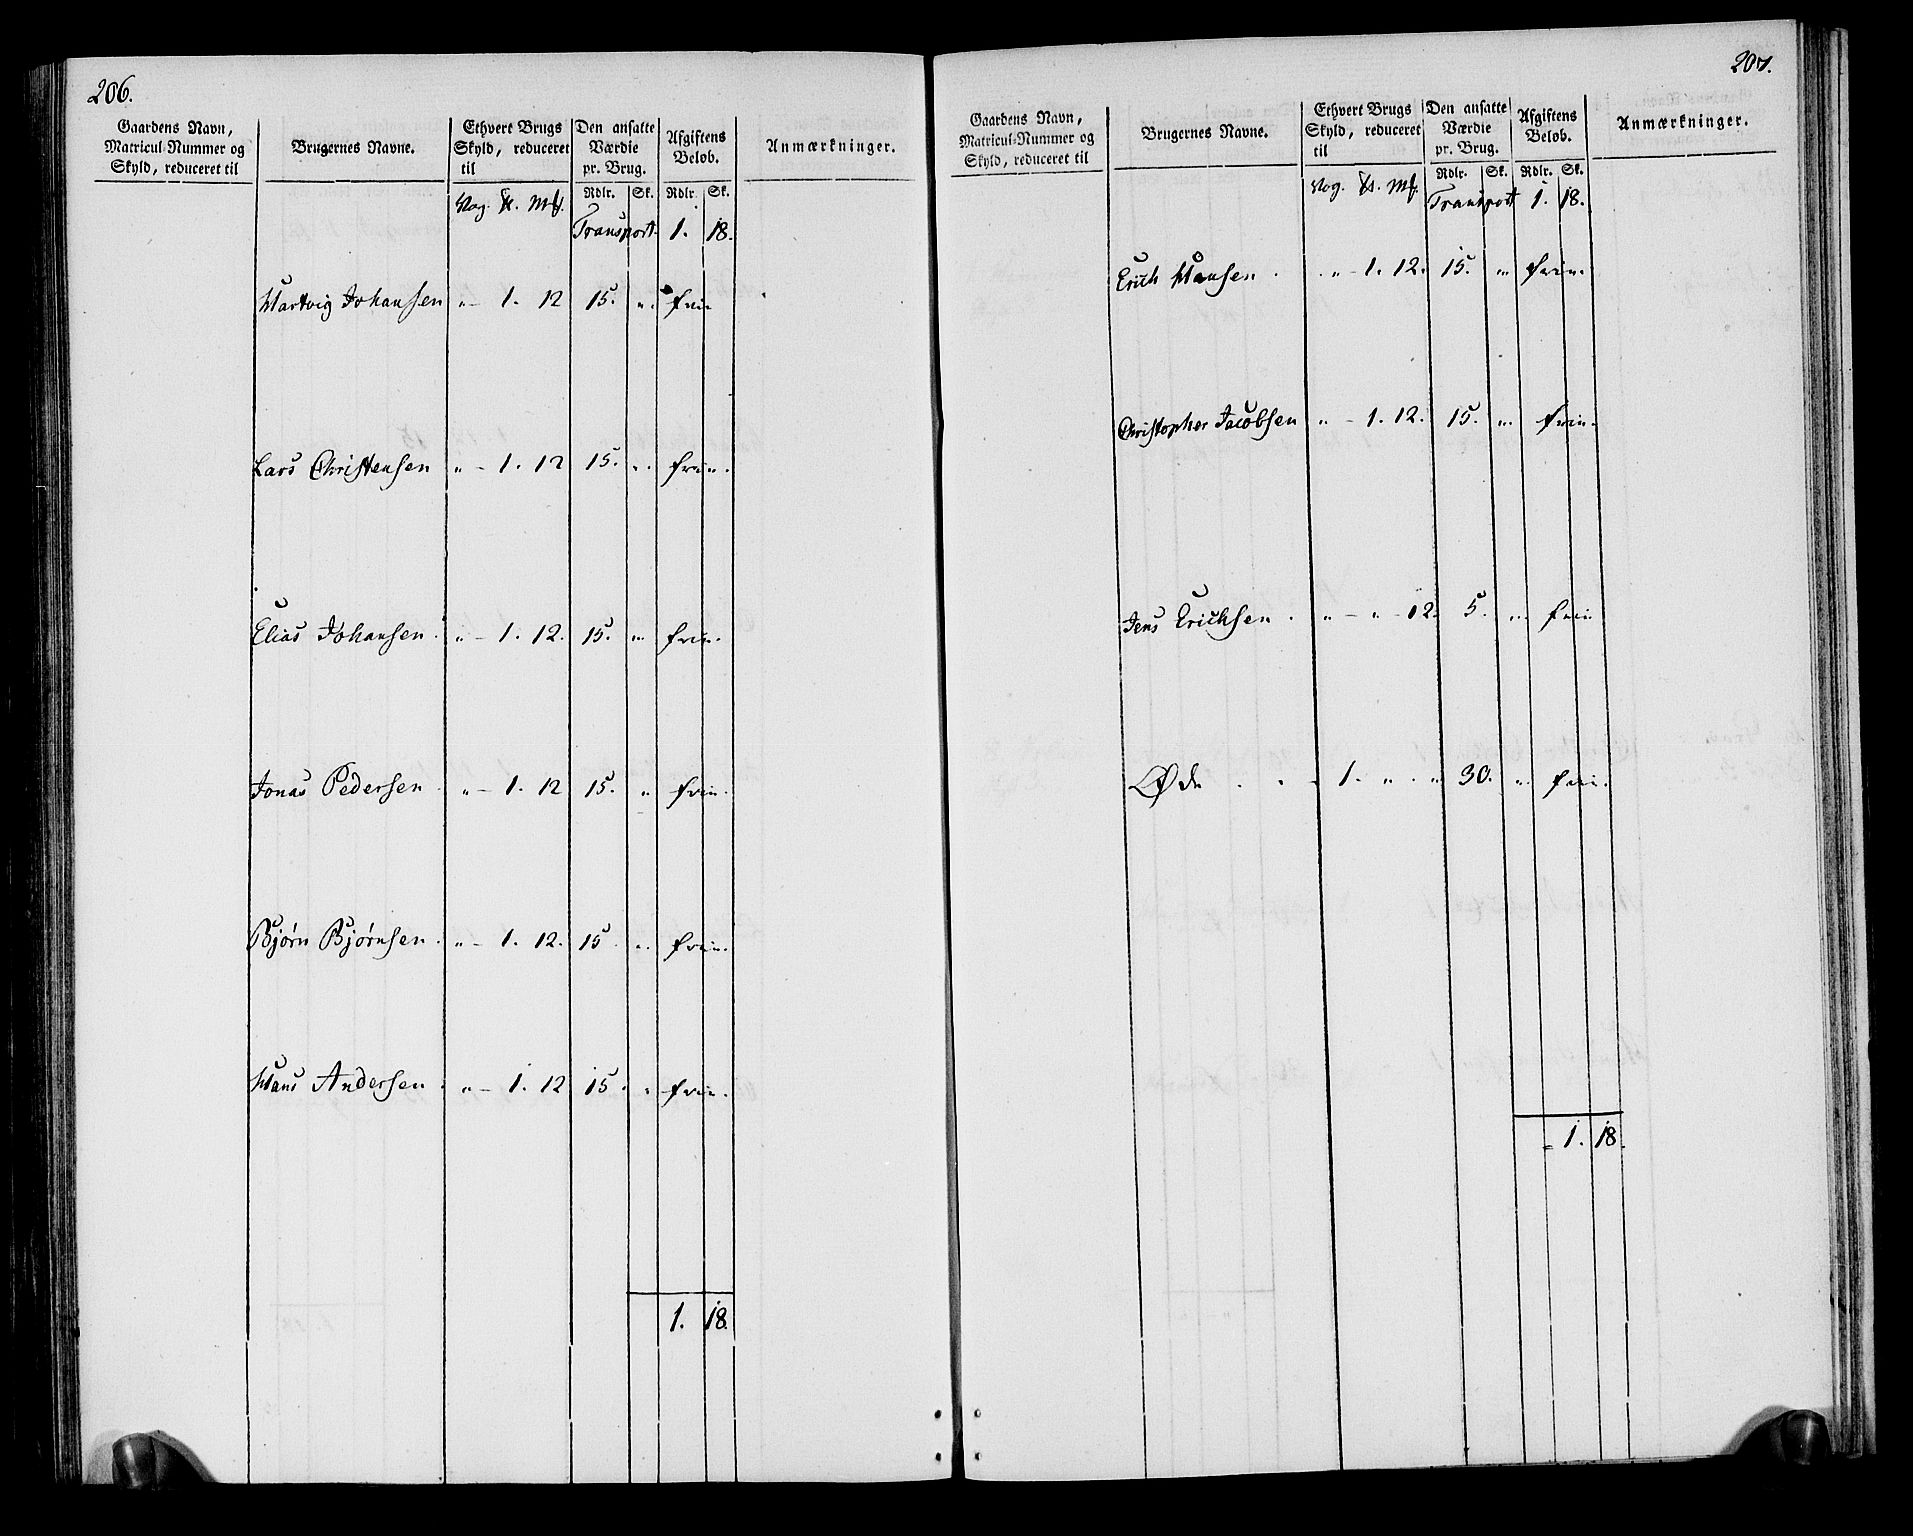 206.
Gaardens Navn, Matricul-Nummer og Skyld, reduceret til
Brugernes Navne.
Ethvert Brugs Skyld, reduceret til
Den ansatte Værdie pr. Brug.
Afgiftens Beløb.
Anmærkninger.
Rdlr. Sk. Rdlr. Sk.
Vog. ℔. Mk.
Transport. 1. 18.
Hartvig Johansen „ – 1. 12 15. „. frie
Lars Christensen „ – 1. 12 15. „. frie.
Elias Johansen. „ – 1. 12. 15. „. frie.
Jonas Pedersen. „ – 1. 12 15. „ frie.
Bjørn Bjørnsen. „ – 1. 12. 15. „. frie.
Hans Andersen. „ – 1. 12 15. „ frie.
1. 18.
207.
Gaardens Navn, Matricul-Nummer og Skyld, reduceret til
Brugernes Navne.
Ethvert Brugs Skyld, reduceret til
Den ansatte Værdie pr. Brug.
Afgiftens Beløb.
Anmærkninger.
Rdlr. Sk. Rdlr. Sk.
Vog. ℔. Mk.
Transport 1. 18.
Erich Hansen . . „ – 1. 12. 15. „ frie.
Christopher Jacobsen „ – 1. 12. 15. „. frie.
Jens Erichsen . „ – „ – 12. 5. „. frie
Øde . . – 1. „ . „ 30. „. frie.
1. 18.